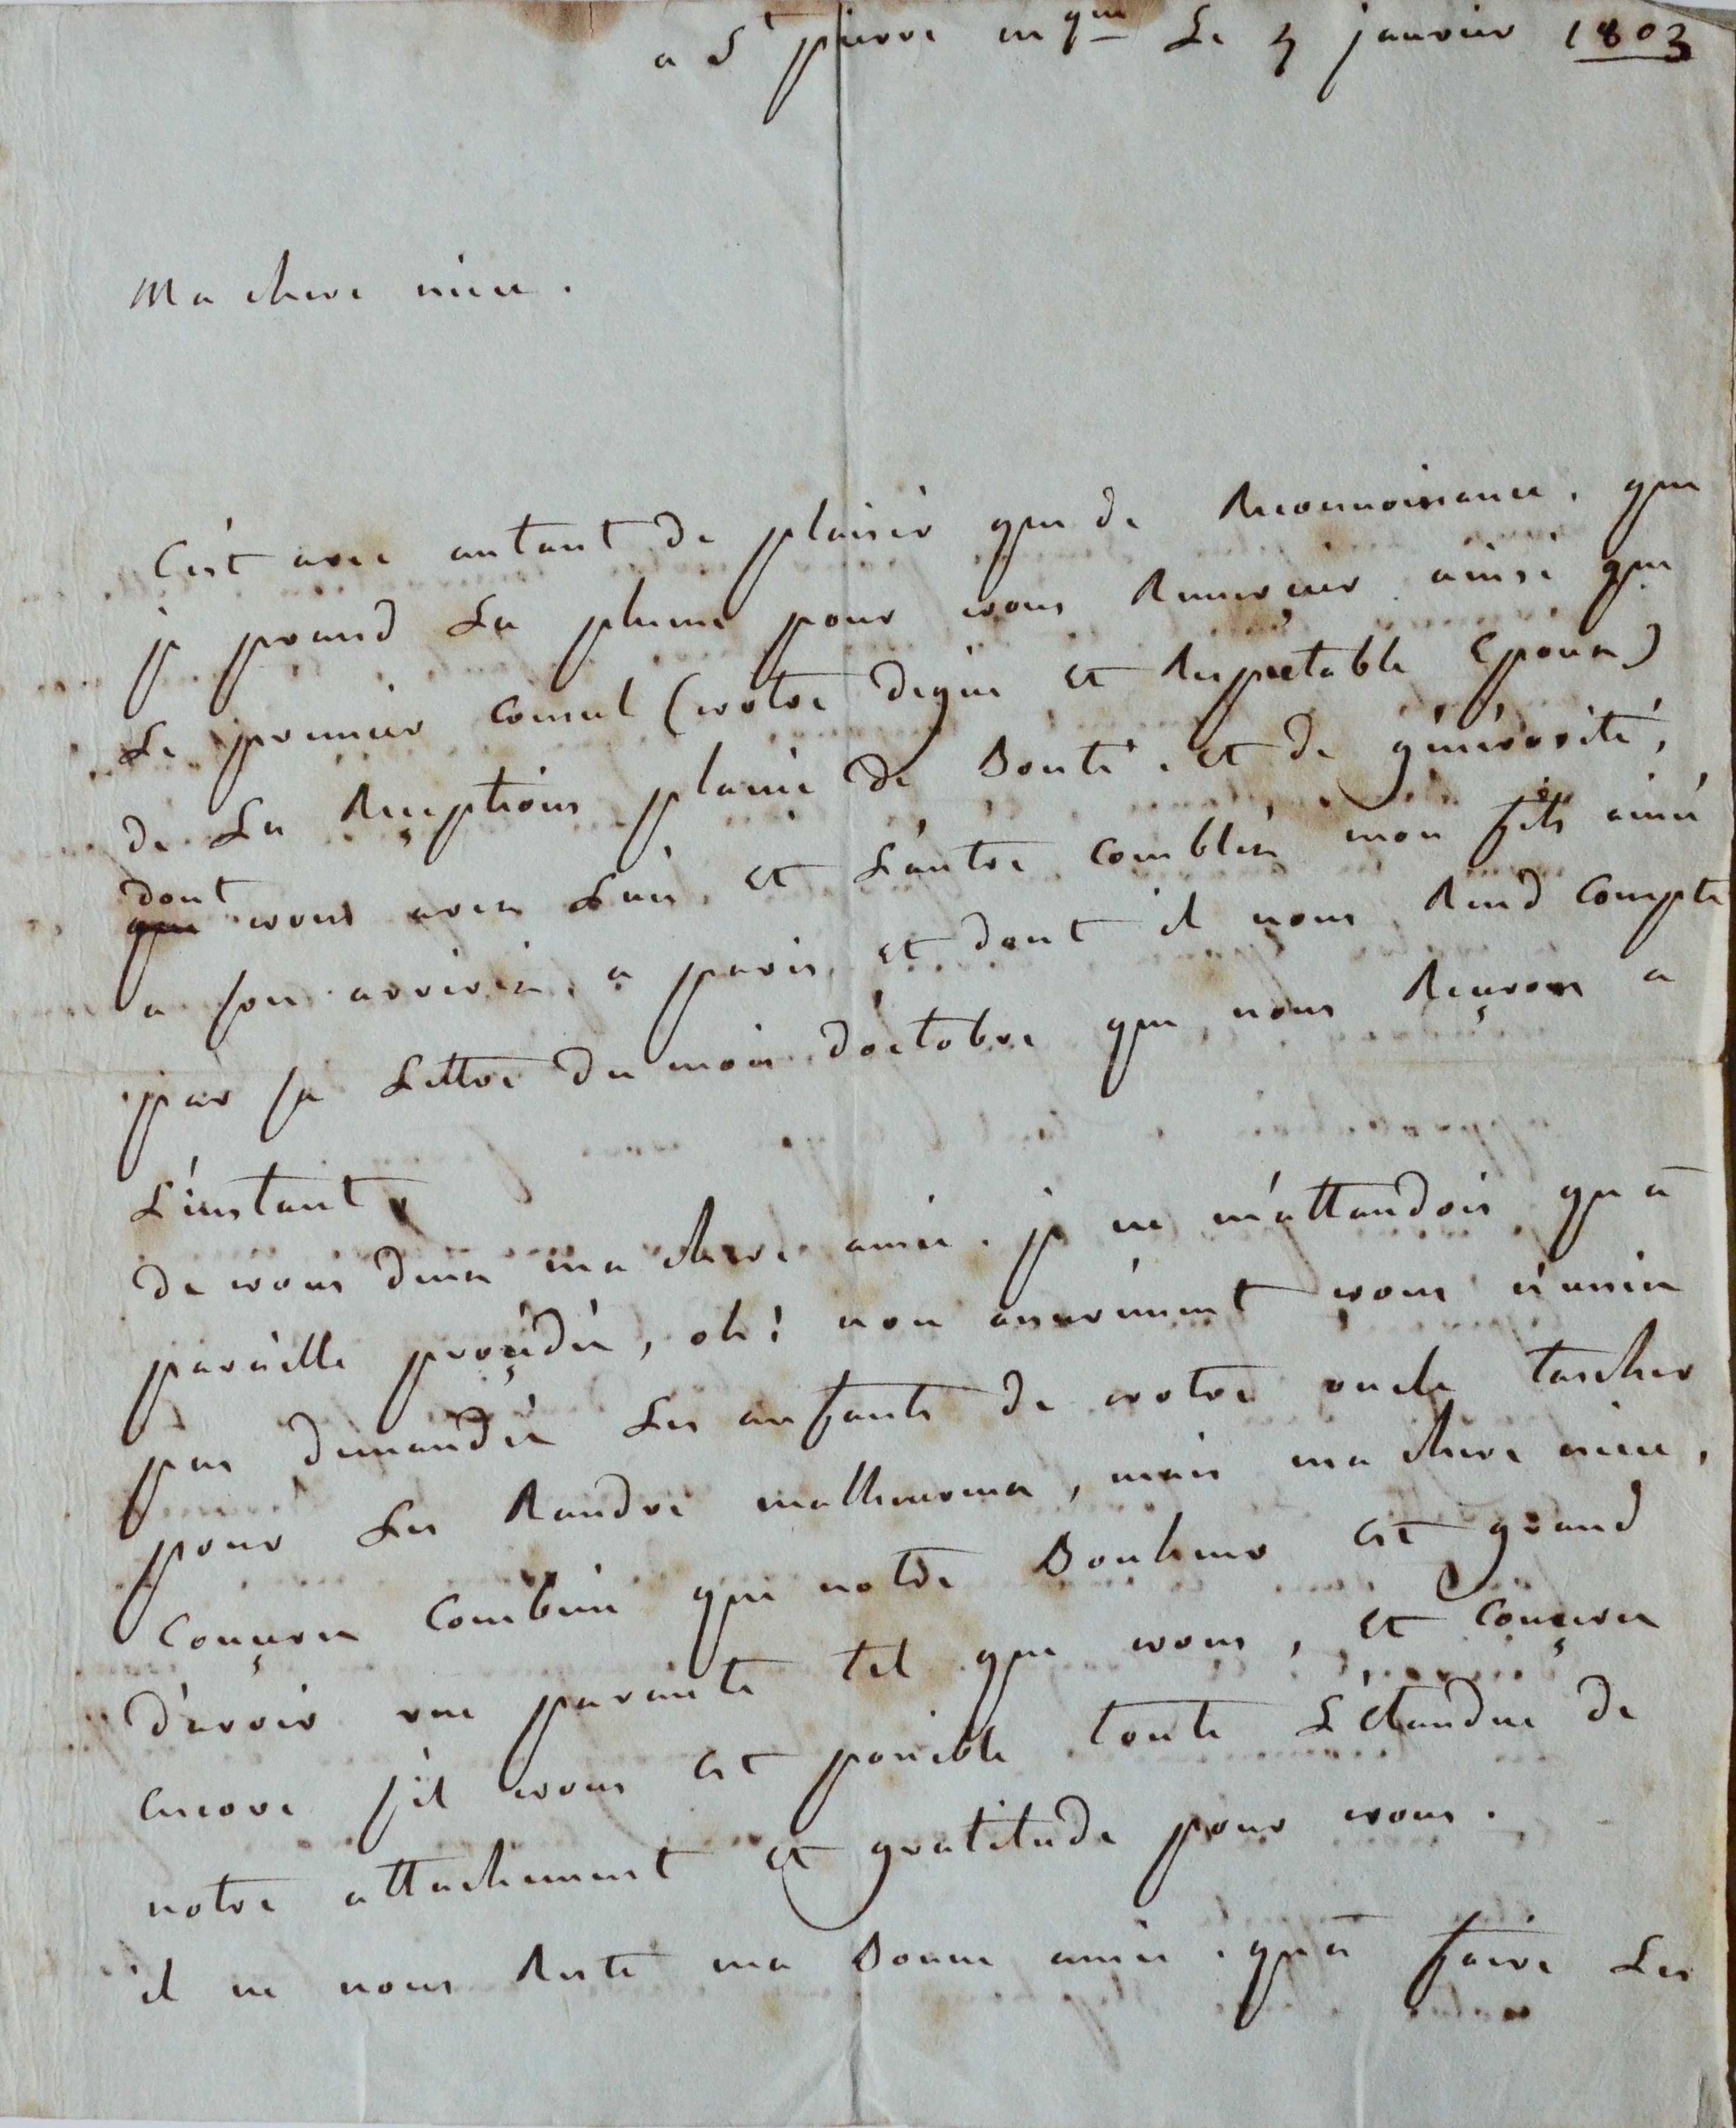 a St pierre mque Le 4 janvier 1803
Ma chere niece.
C'est avec autant de plaisir que de Reconnoissance. que
je prand La plume pour vous Remerçier ainsi que
Le premier Consul (votre digne et Respectable Epoux)
de La Reçeptions plaine de Bonté. et de générosité,
dont
que vous avez L'un. et L'autre comblés mon fils ainé
a son arrivéz. a paris. et dont il nous Rend Compte
par sa Lettre du mois d'octobre que nous Reçuvons a
L'instant,
de vous deux ma chere amie. je ne m'attandois qu'a
pareille proçédée, oh! non assurément vous n'aviez
pas demandéz Les anfants de votre oncle tascher
pour Les Randre malheureux, mais ma chere niece,
Conçevez Combien que notre Bonheur est grand
d'avoir une parante tel que vous, et conçevez
encore s'il vous est possible toute L'étandue de
notre attachement et gratitude pour vous.
il ne nous Reste ma Bonne amie. qu'a faire Les